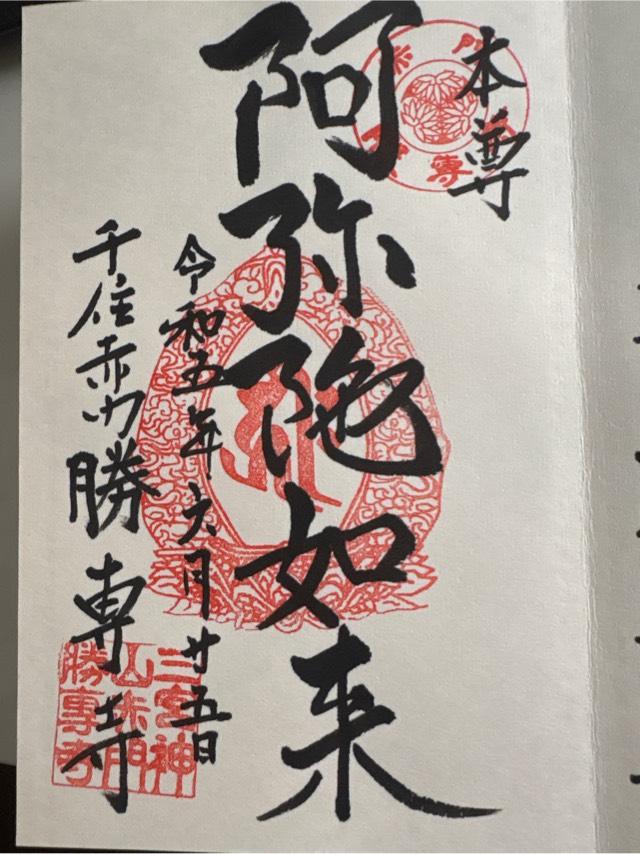 本尊
阿弥陀如来
令和五年六月廿五日
千住赤門勝専寺
三宮神
山朱門
勝専寺